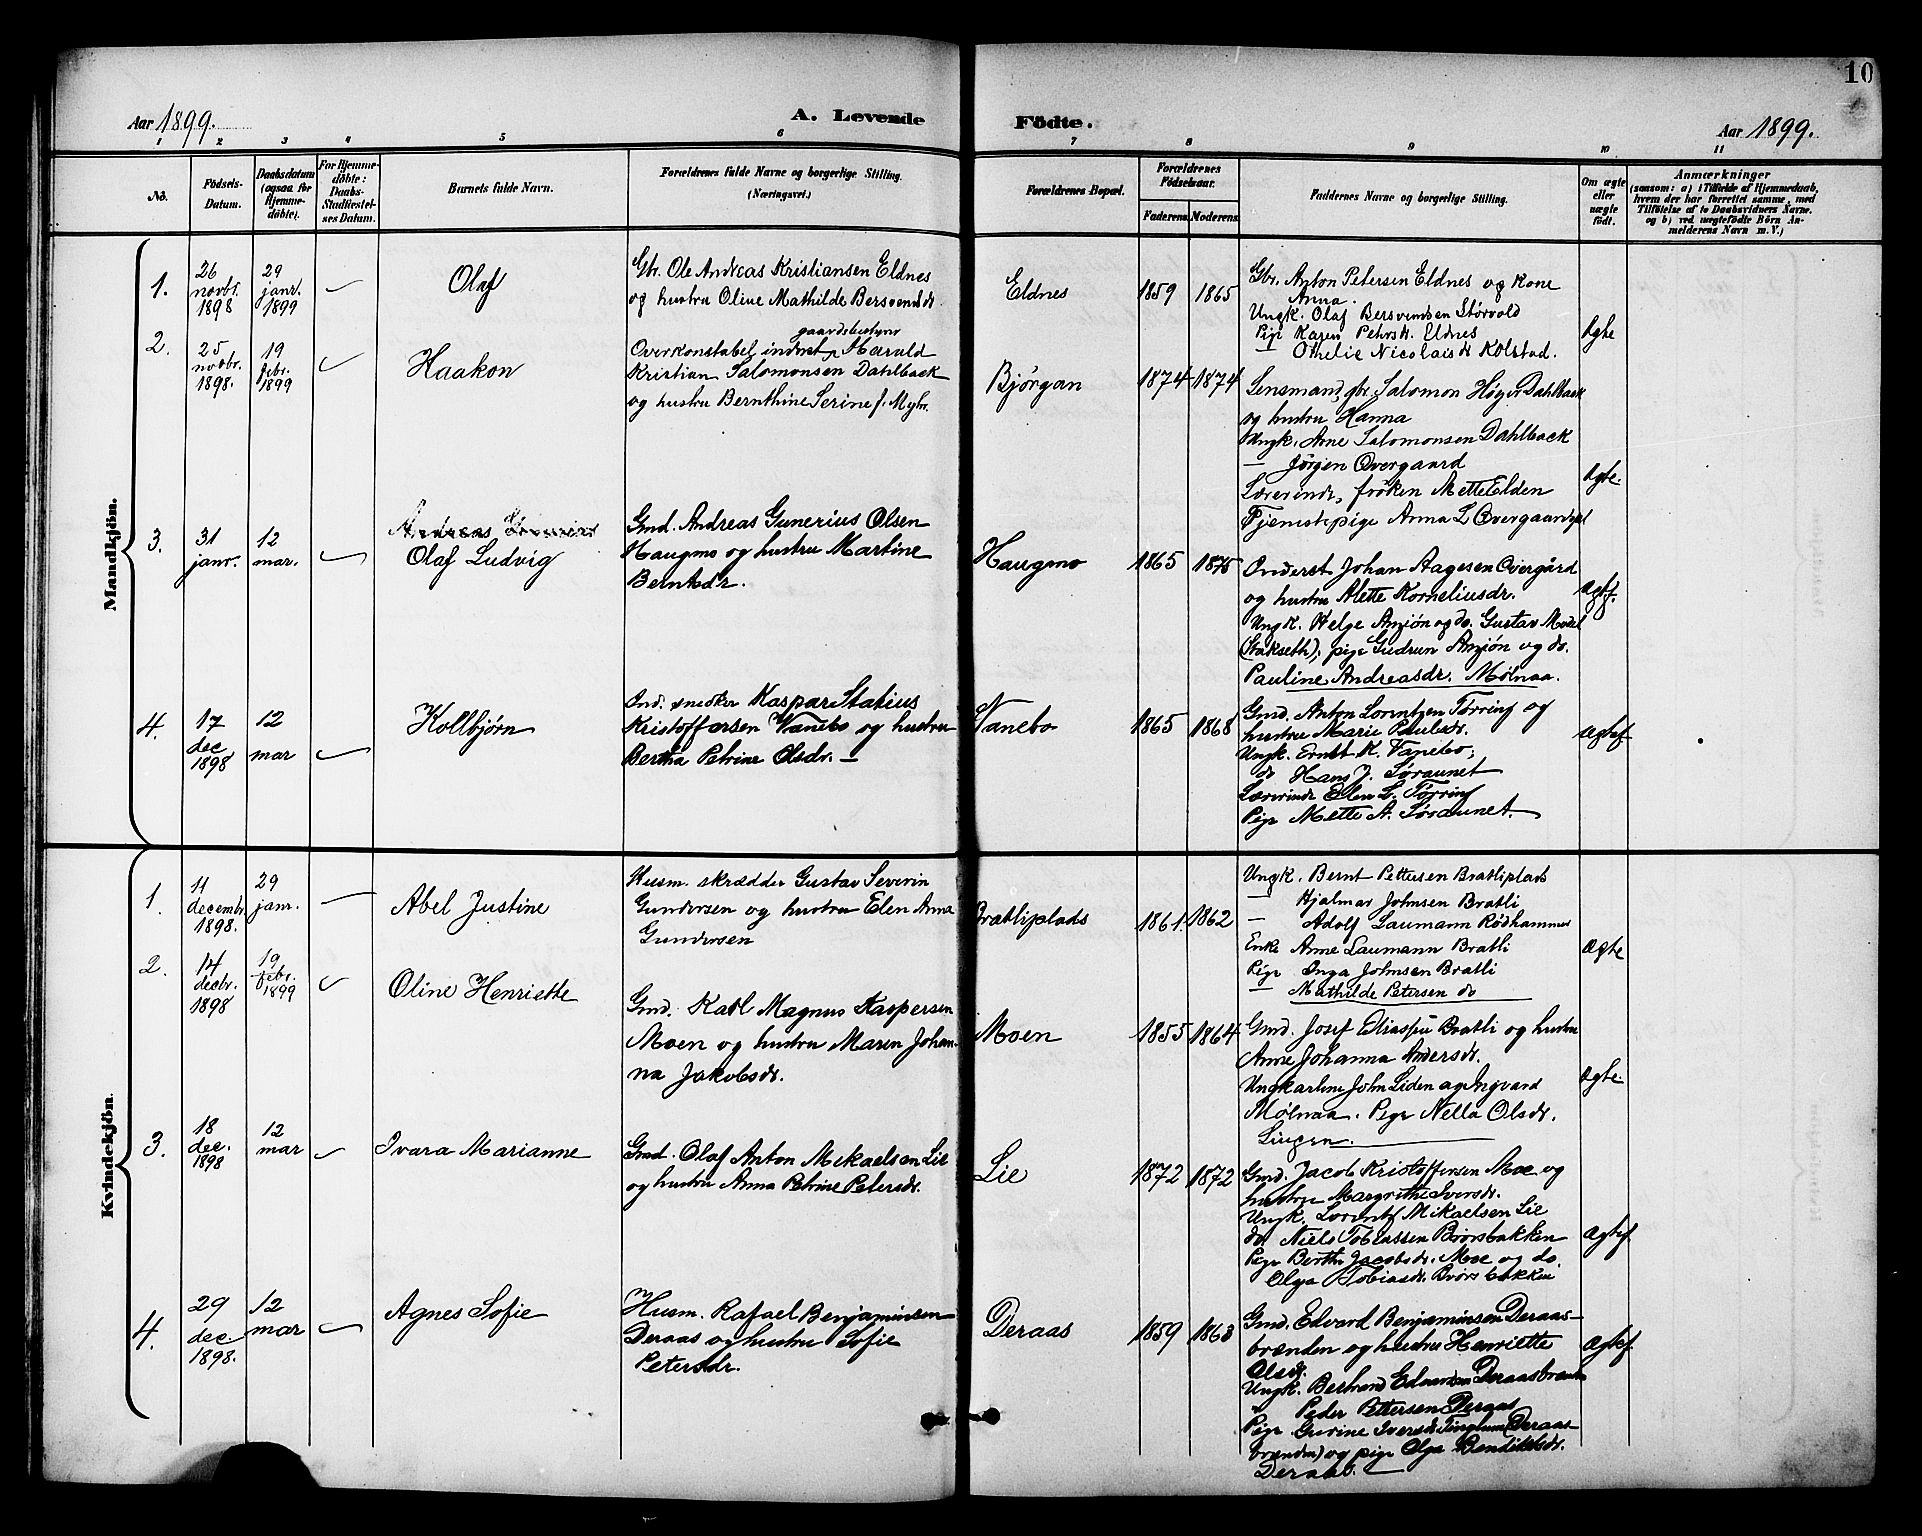 10
Aar 1899.
A. Levende
Födte.
Aar 1899.
1 2 3 4 5 6 7 8 9 10 11
No.
Födsels-
Datum.
Daabsdatum
(ogsaa for
Hjemme-
döbte).
For Hjemme-
döbte:
Daabs-
Stadfæstel-
ses Datum.
Barnets fulde Navn.
Forældrenes fulde Navne og borgerlige Stilling.
(Næringsvei.)
Forældrenes Bopæl.
Forældrenes
Födselsaar.
Faderens.
Moderens.
Faddernes Navne og borgerlige Stilling.
Om ægte
eller
uægte
födt.
Anmærkninger
(saasom: a) i Tilfælde af Hjemmedaab,
hvem der har forrettet samme, med
Tilföielse af to Daabsvidners Navne.
og b) ved uægtefödte Börn An-
melderens Navn m. V.)
Mandkjön.
1.
26
novbr.
1898
29
janr.
1899
Olaf
Gbr. Ole Andreas Kristiansen Eldnes
og hustru Oline Mathilde Bersvendsdr.
Eldnes
1859
1865
Gbr. Anton Petersen Eldnes og Kone
Anna.
Ungk. Olaf Bersvendsen Störvold
Pige Karen Petersdr. Eldnes
— Othelie Nicolaisdr Kolstad.
Ægte
2.
25
novbr.
1898.
19
febr.
1899
Haakon
gaardsbestyrer
Overkonstabel inderst, Harald
Kristian Salomonsen Dahlback
og hustru Bernthine Serine f. Myhr.
Bjørgan
1874
1874
Lensmand, gbr. Salomon Höyer Dahlback
og hustru Hanna
Ungk. Arne Salomonsen Dahlback
— Jörgen Overgaard
Lærerinde, frøken Mette Elden
Tjenestepige Anna L Overgaard
Ægte.
3.
31
janr.
12
mar.
Andreas
Olaf Ludvig
Gmd. Andreas Gunerius Olsen
Haugmo og hustru Martine
Berntsdr.
Haugmo
1865
1875
Inderst Johan Aagesen Overgård
og hustru Alette Korneliusdr.
Ungk. Helge Amjön og do. Gustav
pige Gudrun Amjön og do.
Pauline Andreasdr. Mölnaa.
Ægtef.
4.
17
dec
1898
12
mar
Kolbjørn
Ind. snedker Kaspar Statius
Kristoffersen Vanebo og hustru
Bertha Petrine Olsdr. —
Vanebo
1865
1868
Gmd. Anton Lorentzen Törring og
hustru Marie Paulsdr.
Ungk. Ernst K. Vanebo,
do Hans J. Söraunet
Lærerinde Elen L. Törring
Pige Mette A. Söraunet.
Ægtef.
Kvindekjön.
1.
11
decembr
1898.
29
janr.
Abel Justine
Husm. skrædder Gustav Severin
Gundersen og hustru Elen Anna
Gundersen
Bratliplads
1861.
1862
Ungk. Bernt Pettersen Bratliplads
— Hjalmar Johnsen Bratli
— Adolf Laumann Rödhammer
Enke Anne Laumann Bratli
Pige Inga Johnsen Bratli
— Mathilde Petersen do
Ægte
2.
14
decbr.
1898
19
febr.
1899
Oline Henriette
Gmd. Karl Magnus Kaspersen
Moen og hustru Maren Johan-
na Jakobsdr.
Moen
1855
1864
Gmd. Josef Bratli og hustru
Anne Johanna Andersdr.
Ungkarlene John Liden og Ingvard
Mölnaa. Pige Nella Olsdr.
Ægte.
3.
18
dec.
1898
12
mar
Ivara Marianne
Gmd. Olaf Anton Mikaelsen Lie
og hustru Anna Petrine Petersdr.
Lie
1872
1872
Gmd. Jacob Kristoffersen Moe og
hustru Margrethe Iversdr.
Ungk. Lorents Mikaelsen Lie
do. Niels Tobiassen Brörsbakken
Pige Berthe Jacobsdr. Moe og do.
Olga Tobiasdr. Brörsbakken
Ægtef.
4.
29
dec.
1898.
12
mar
Agnes Sofie
Husm. Rafael Benjaminsen
Deraas og hustru Sofie
Petersdr.
Deraas
1859
1863
Gmd. Edvard Benjaminsen Deraas-
brænden og hustru Henriette
Olsdr.
Ungk. Bertrand Edvardsen Deraasbrænden
Peder Pettersen Deraas
Pige Gurine Iversdr. (Deraas-
brænden) og pige Olga Bendiktsdr.
Deraas.
Ægtef.